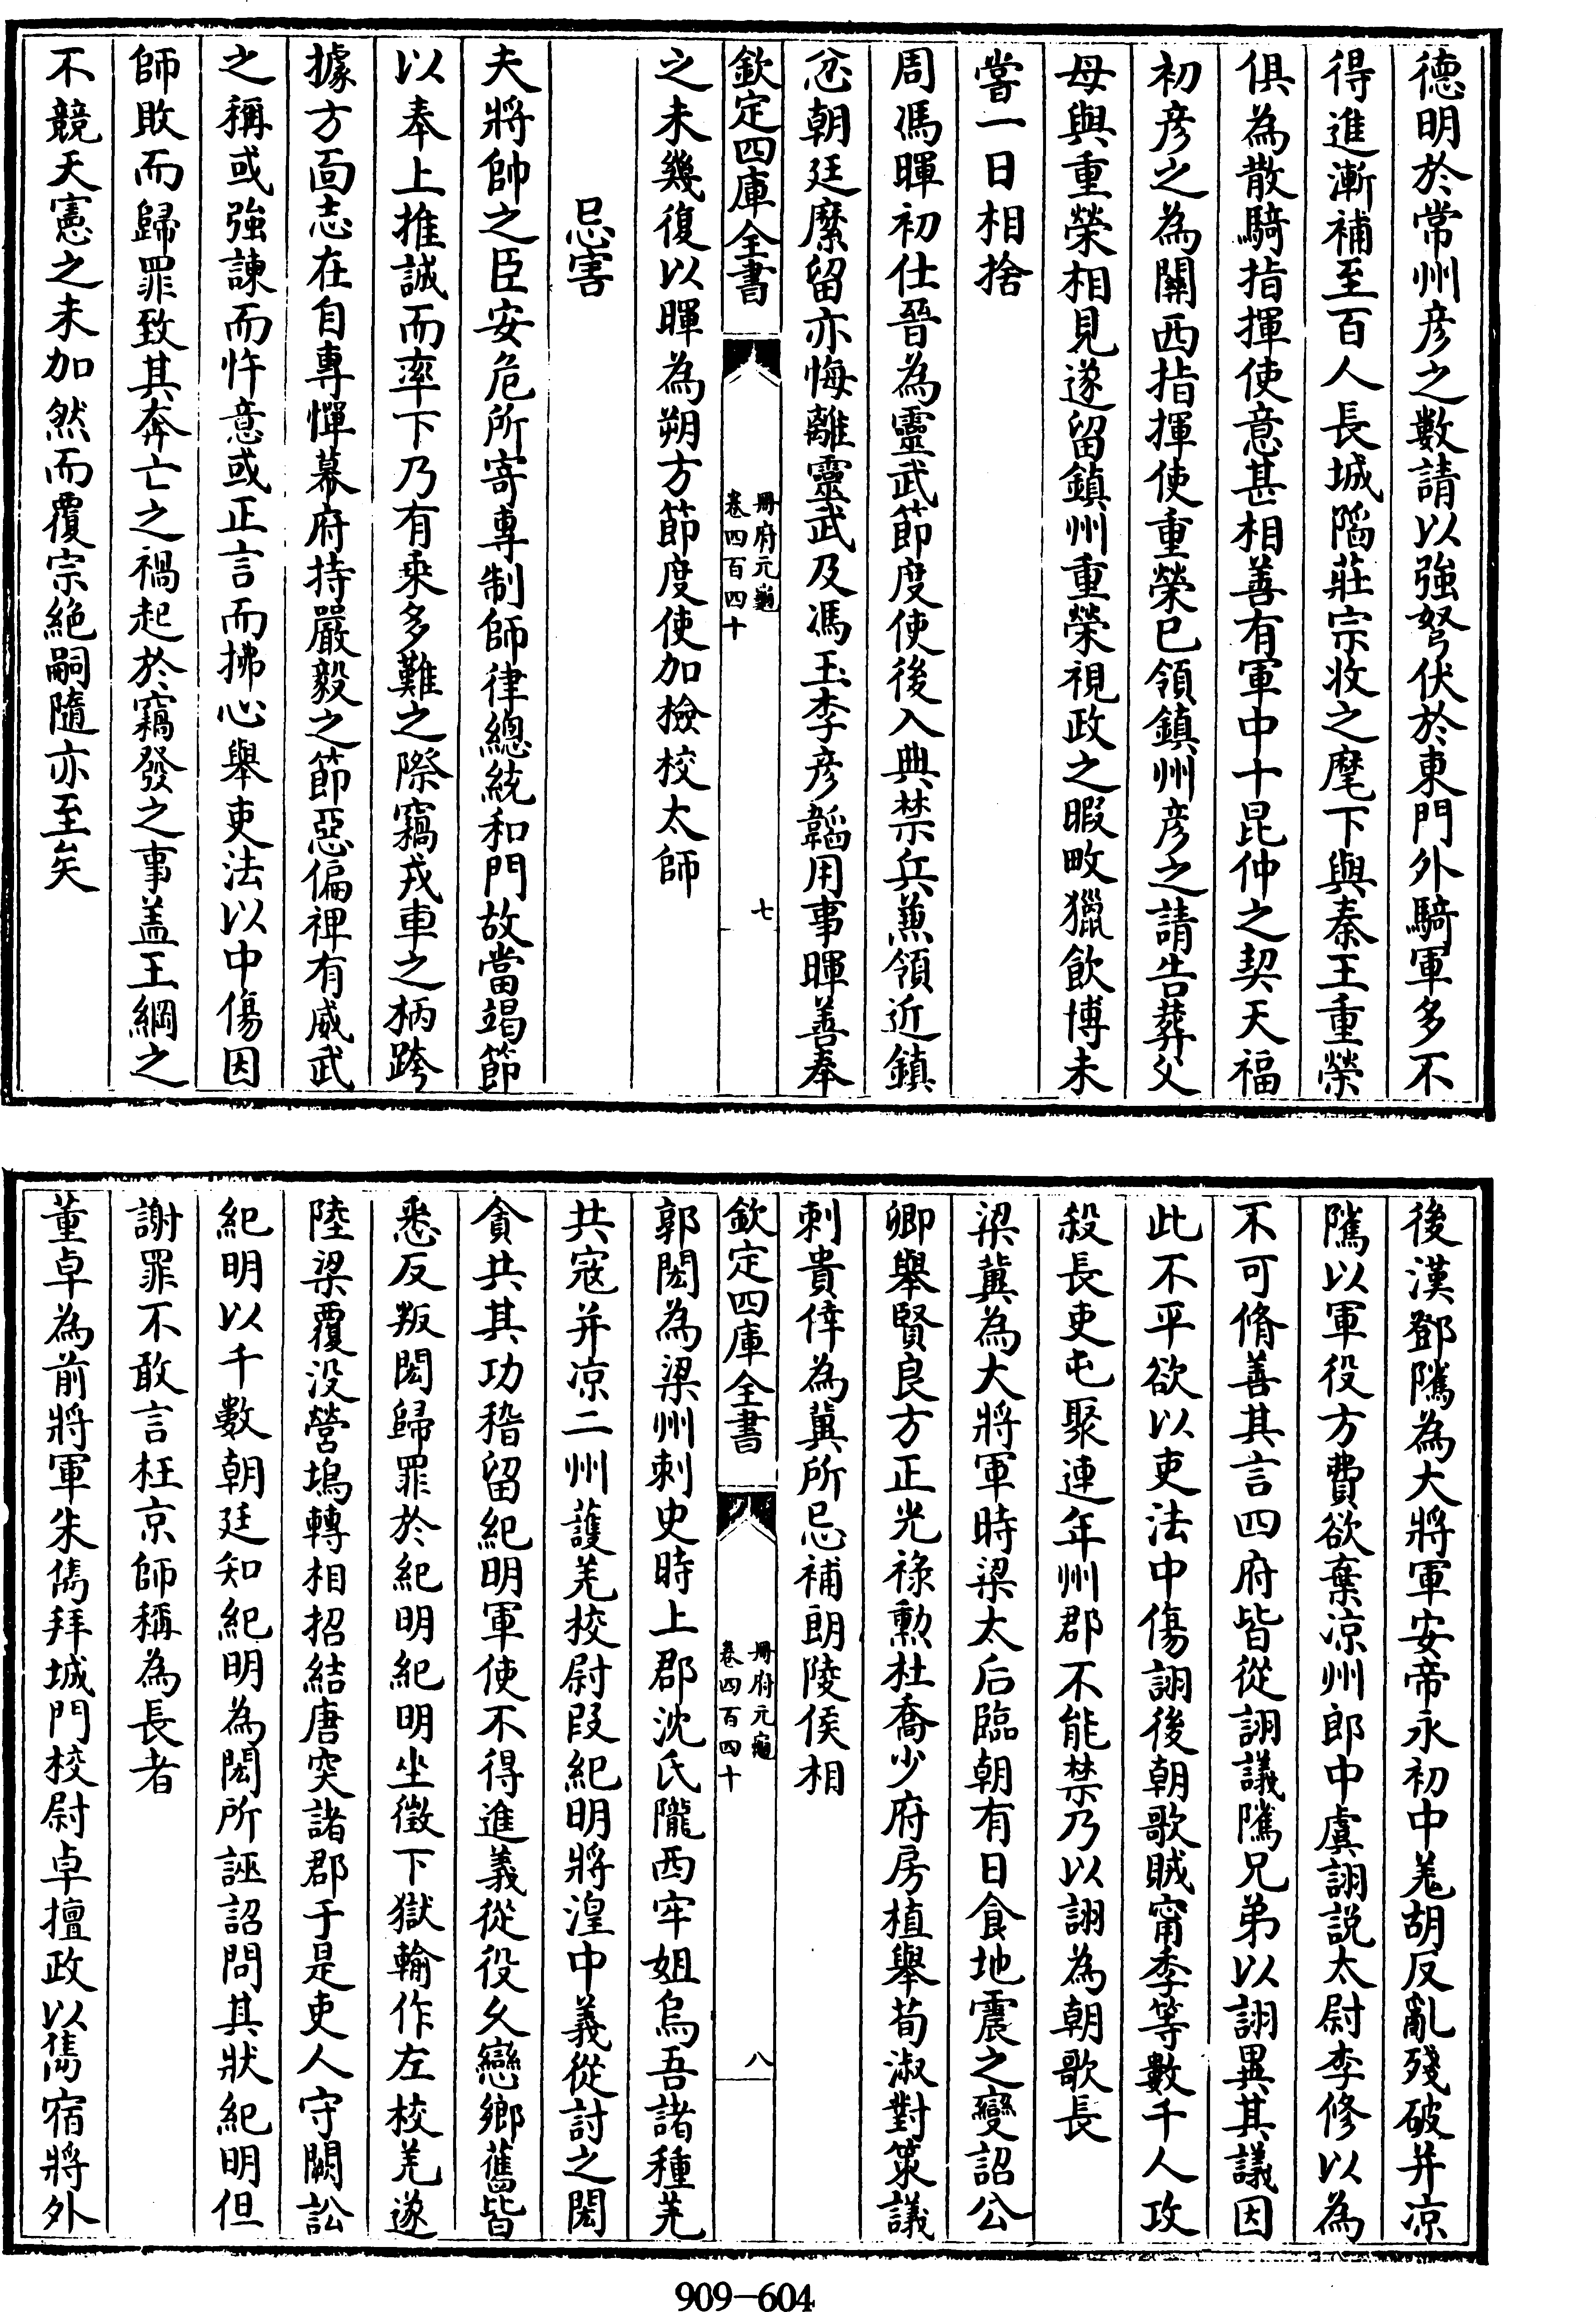 德明於常州彦之數請以強弩伏於東門外騎軍多不
得進漸補至百人長城陷莊宗收之麾下與秦王重榮
俱為散騎指揮使意甚相善有軍中十昆仲之契天福
初彦之為關西指揮使重榮已領鎮州彦之請告葬父
母與重榮相見遂留鎮州重榮視政之暇畋獵飲博未
嘗一日相捨
周馮暉初仕晉為靈武節度使後入典禁兵兼領近鎮
忿朝廷縻留亦悔離靈武及馮玉李彦韜用事暉善奉
欽定四庫全書
冊府元龜
卷四百四十
七
之未幾復以暉為朔方節度使加撿校太師
忌害
夫將帥之臣安危所寄專制師律總統和門故當竭節
以奉上推誠而率下乃有乘多難之際竊戎車之柄跨
據方面志在自專憚幕府持嚴毅之節惡偏禆有威武
之稱或強諫而忤意或正言而拂心舉吏法以中傷因
師敗而歸罪致其奔亡之禍起於竊發之事盖王綱之
不競天憲之未加然而覆宗絶嗣隨亦至矣
後漢鄧隲為大將軍安帝永初中羗胡反亂殘破并凉
隲以軍役方費欲棄凉州郎中虞詡説太尉李修以為
不可脩善其言四府皆從詡議隲兄弟以詡異其議因
此不平欲以吏法中傷詡後朝歌賊甯季等數千人攻
殺長吏屯聚連年州郡不能禁乃以詡為朝歌長
梁冀為大將軍時梁太后臨朝有日食地震之變詔公
卿舉賢良方正光祿勲杜喬少府房植舉荀淑對策議
刺貴倖為冀所忌補朗陵侯相
欽定四庫全書
冊府元龜
卷四百四十
八
郭閎為梁州刺史時上郡沈氏隴西牢姐烏吾諸種羌
共寇并凉二州護羌校尉段紀明將湟中義從討之閎
貪共其功稽留紀明軍使不得進義從役久戀鄉舊皆
悉反叛閎歸罪於紀明紀明坐徵下獄輸作左校羌遂
陸梁覆没營塢轉相招結唐突諸郡于是吏人守闕訟
紀明以千數朝廷知紀明為閎所誣詔問其狀紀明但
謝罪不敢言枉京師稱為長者
董卓為前將軍朱儁拜城門校尉卓擅政以儁宿將外
909-604